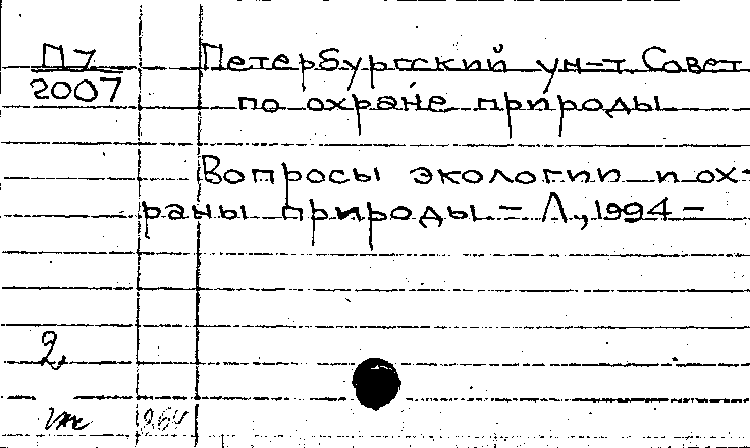 П7
2007
Петербургский ун-т. Совет
по охране природы
Вопросы экологии и ох-
раны природы. – Л., 1994 –
2